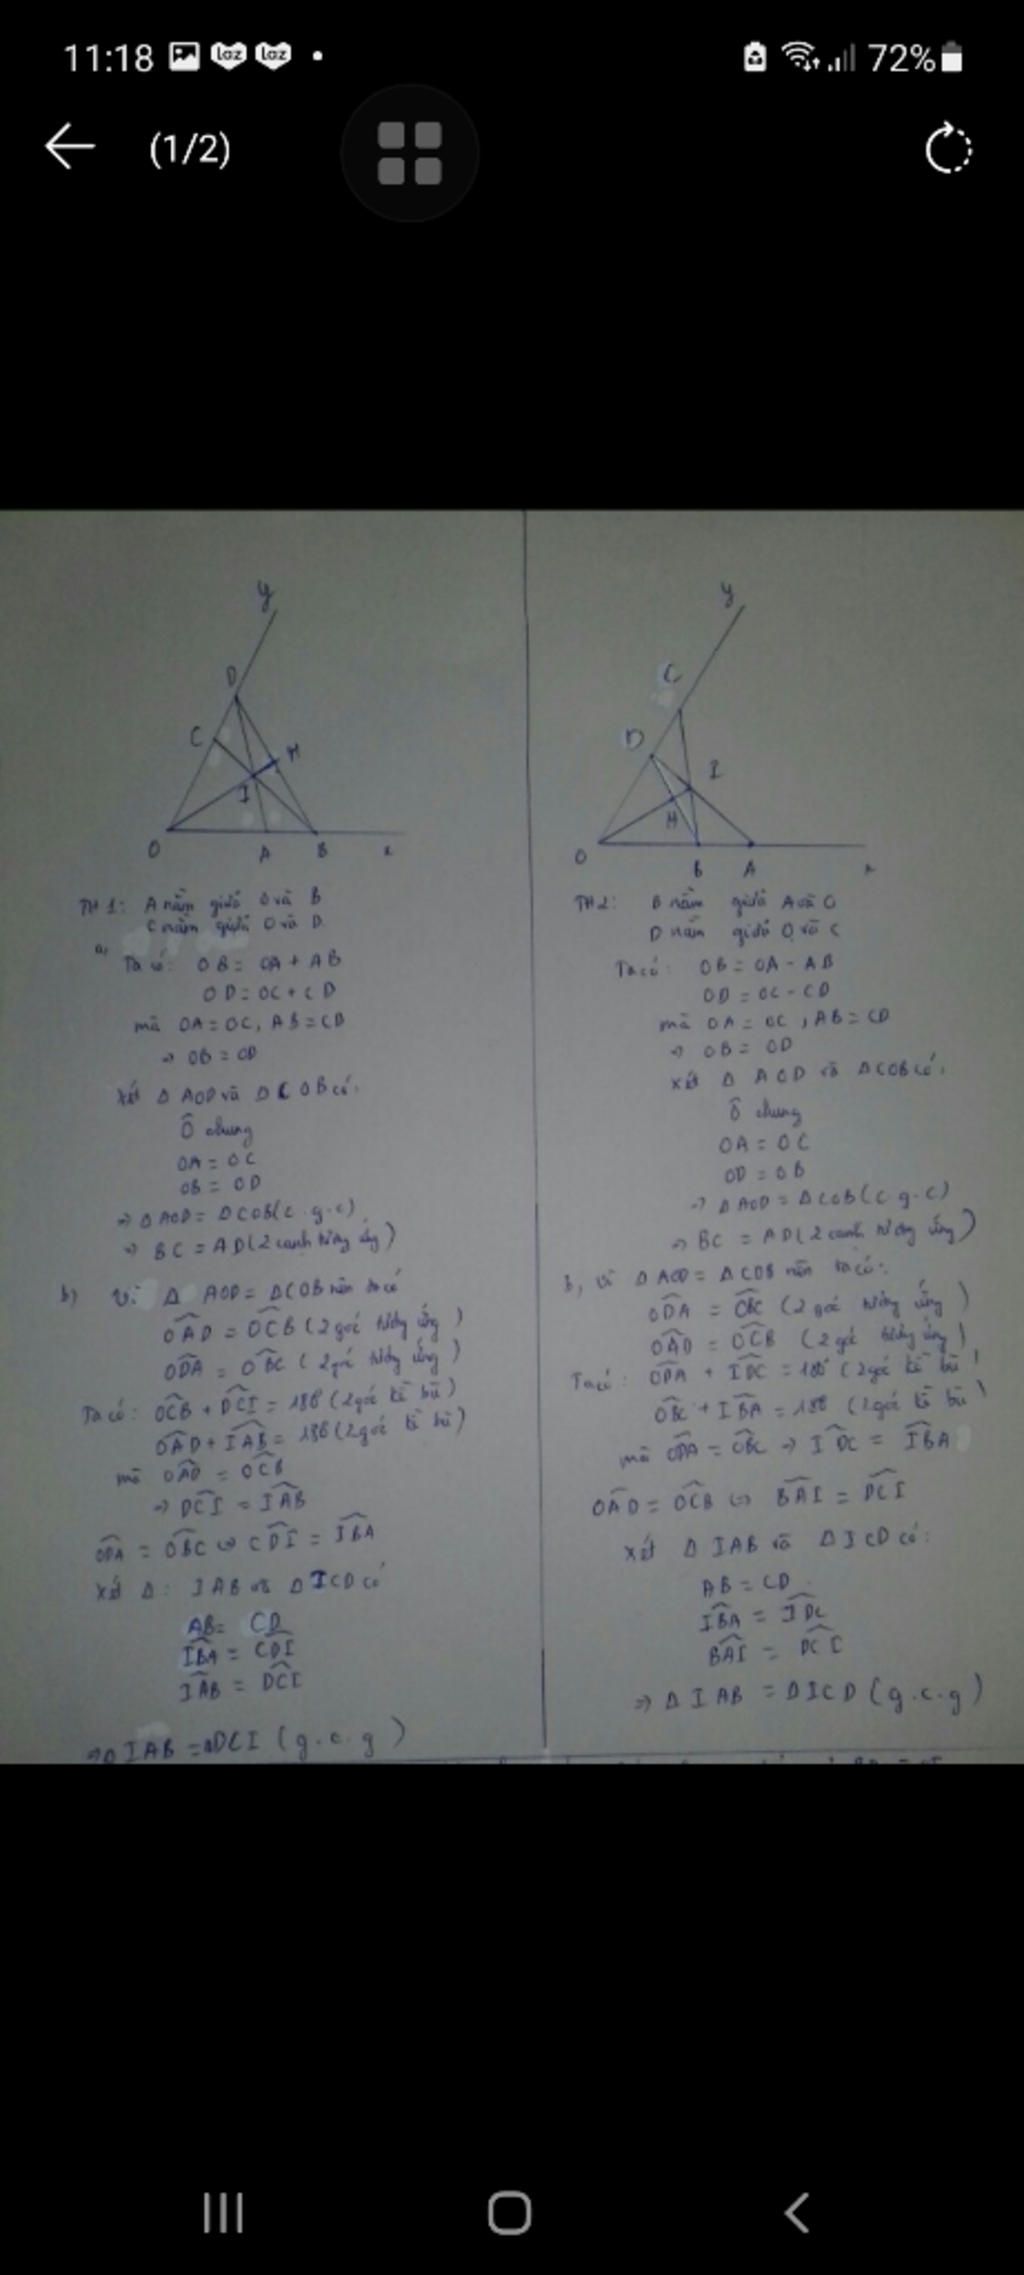 11:18
72%
(1/2)
y
D
C
M
I
O
A
B
x
TH 1: A nằm giữa O và B
C nằm giữa O và D.
a,
Ta có: OB = OA + AB
OD = OC + CD
mà OA = OC, AB = CD
⇒ OB = OD
Xét Δ AOD và Δ COB có:
Ô chung
OA = OC
OB = OD
⇒ Δ AOD = Δ COB (c.g.c)
⇒ BC = AD (2 cạnh tương ứng)
b) Vì Δ AOD = Δ COB nên ta có
OÂD = OĈB (2 góc tương ứng)
OD̂A = OB̂C (2 góc tương ứng)
Ta có: OĈB + DĈI = 180 (2 góc kề bù)
OÂD + IÂB = 180 (2 góc kề bù)
mà OÂD = OĈB
⇒ DĈI = IÂB
OD̂A = OB̂C ⇔ CD̂I = IB̂A
Xét Δ: IAB và Δ ICD có
AB = CD
IB̂A = CD̂I
IÂB = DĈI
⇒ Δ IAB = Δ DCI (g.c.g)
y
C
D
I
H
O
B
A
x
TH2: B nằm giữa A và O
D nằm giữa O và C
Ta có: OB = OA - AB
OD = OC - CD
mà OA = OC, AB = CD
⇒ OB = OD
Xét Δ AOD và Δ COB có:
Ô chung
OA = OC
OD = OB
⇒ Δ AOD = Δ COB (c.g.c)
⇒ BC = AD (2 cạnh tương ứng)
b, Vì Δ AOD = Δ COB nên ta có:
OD̂A = OB̂C (2 góc tương ứng)
OÂD = OĈB (2 góc tương ứng)
Ta có: OD̂A + ID̂C = 180° (2 góc kề bù)
OB̂C + IB̂A = 180 (2 góc kề bù)
mà OD̂A = OB̂C ⇒ ID̂C = IB̂A
OÂD = OĈB ⇔ BÂI = DĈI
Xét Δ IAB và Δ ICD có:
AB = CD
IB̂A = ID̂C
BÂI = DĈI
⇒ Δ IAB = Δ ICD (g.c.g)